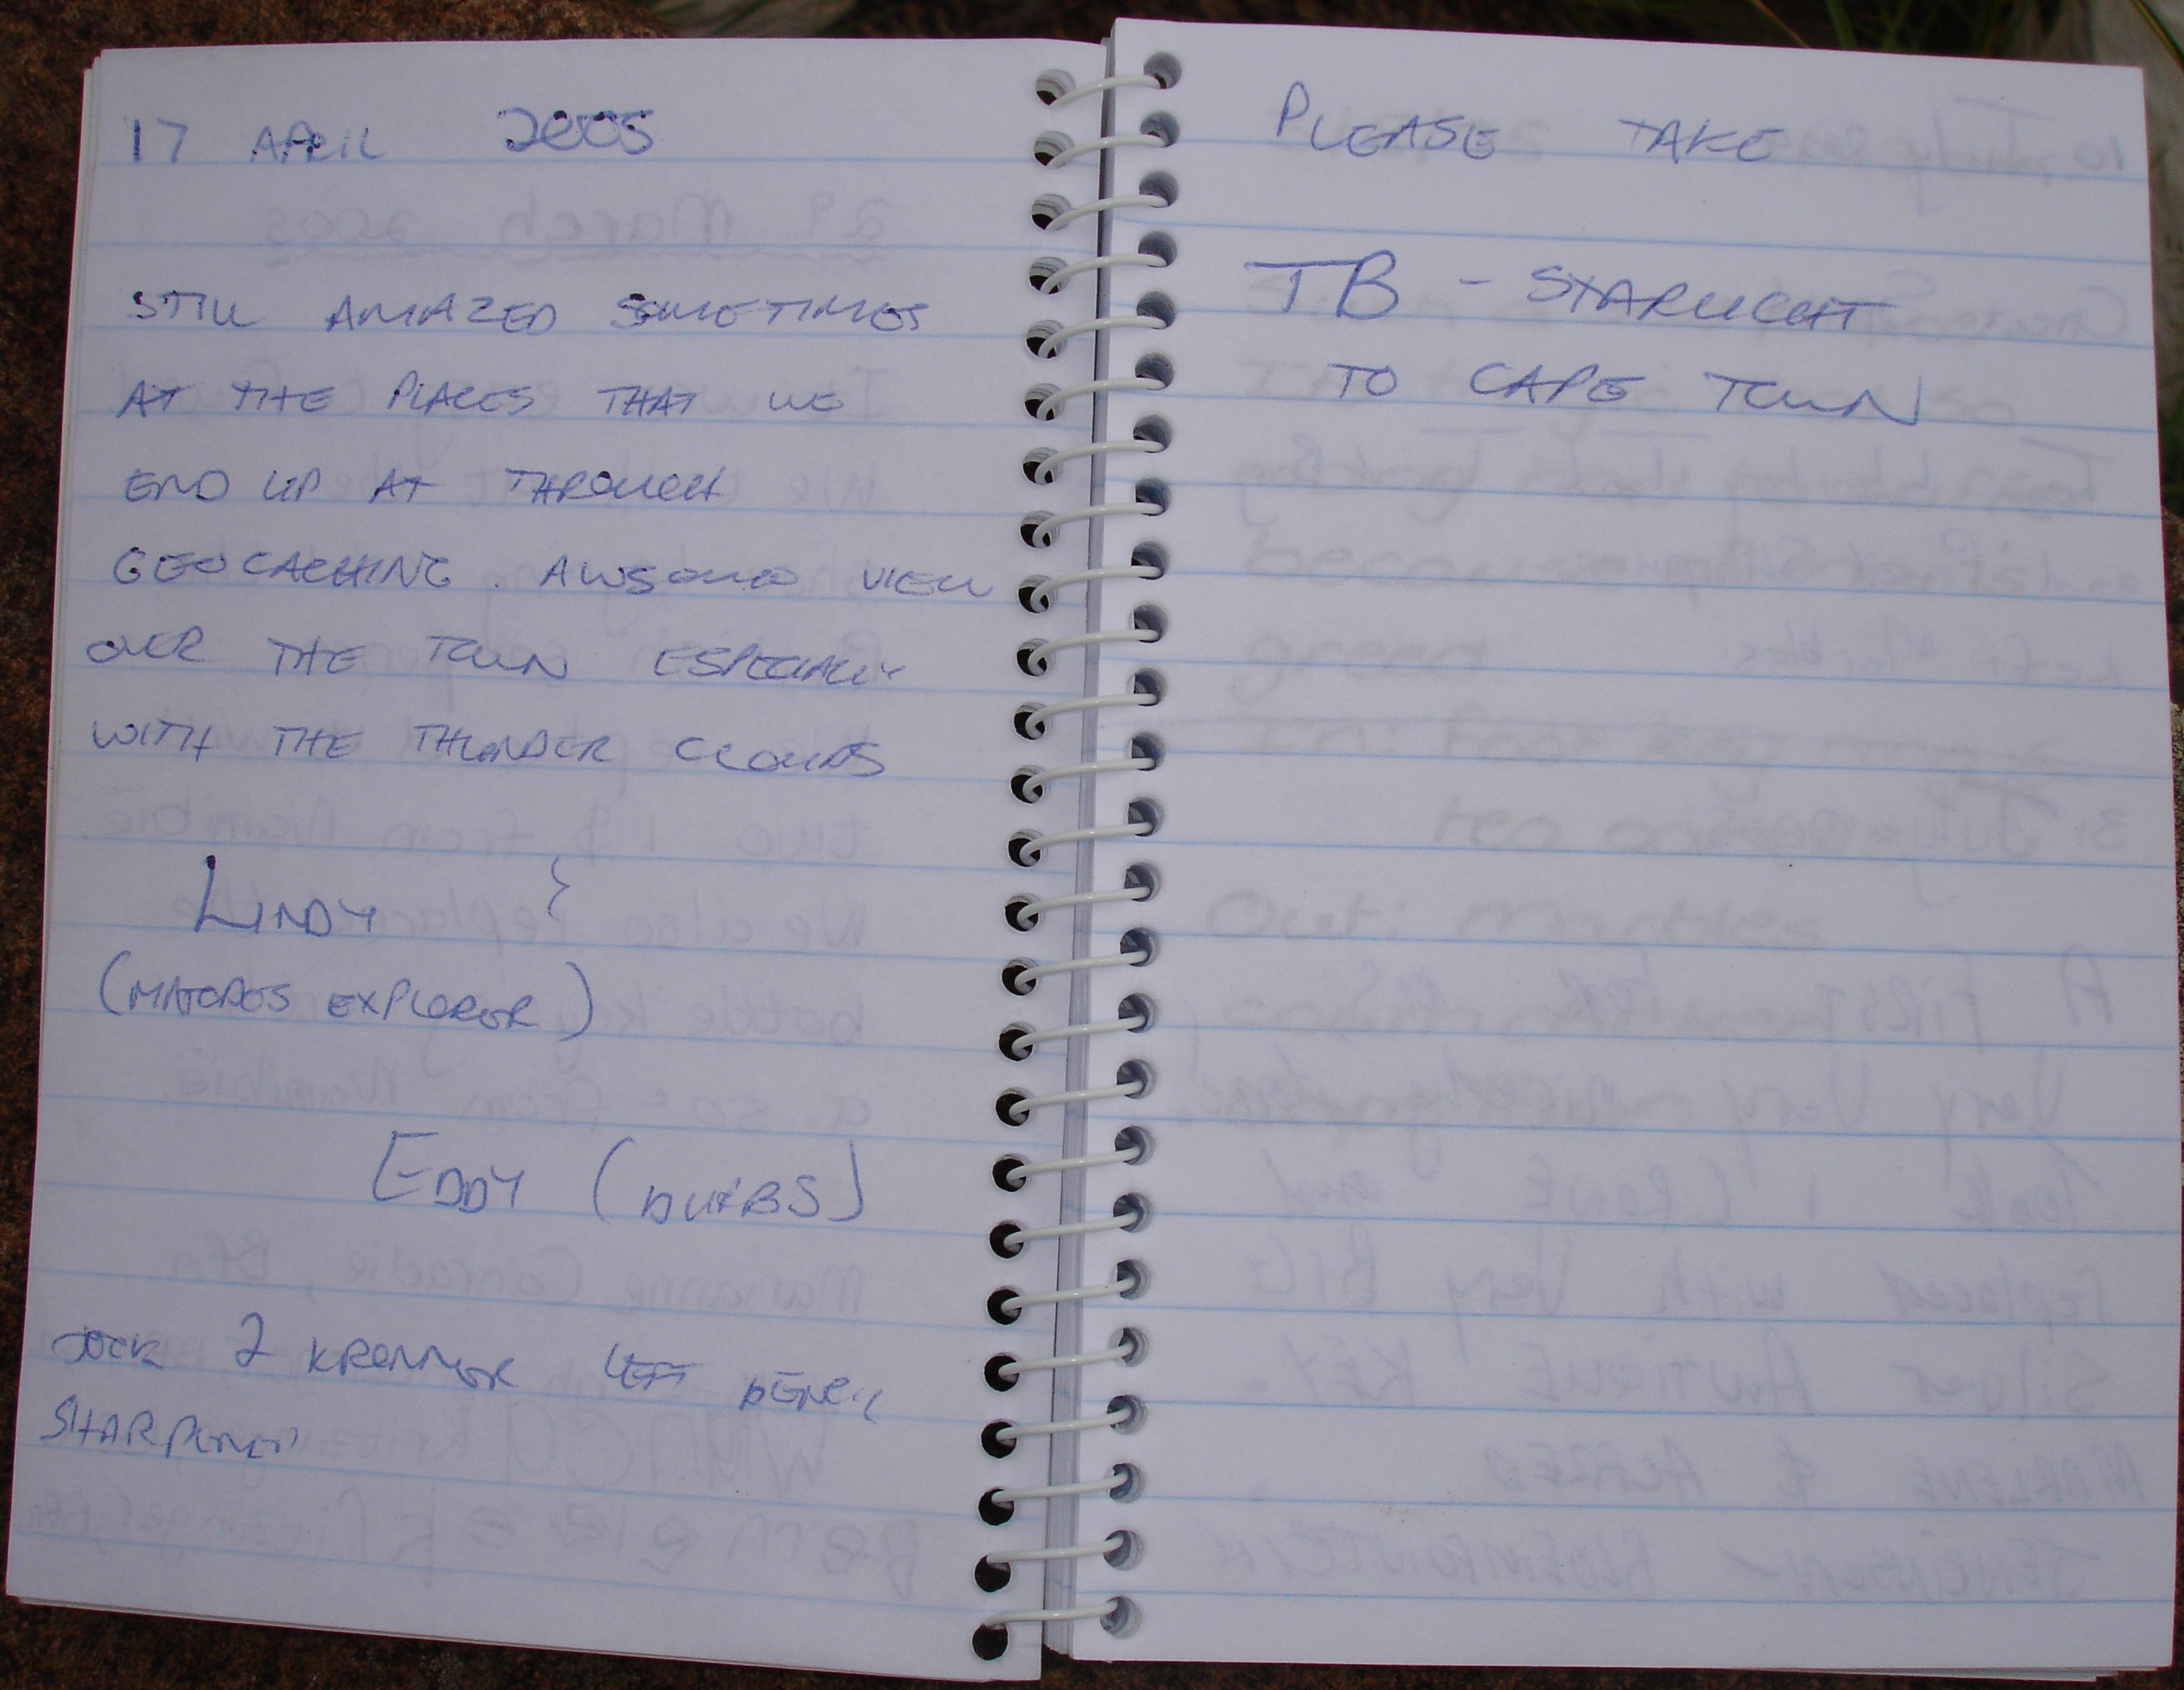 17 APRIL 2005
STILL AMAZED SOMETIMES
AT THE PLACES THAT WE
END UP AT THROUGH
GEOCACHING. AWSOME VIEW
OVER THE TOWN ESPECIALLY
WITH THE THUNDER CLOUDS
LINDY &
(MATOPOS EXPLORER)
EDDY (DUXBS)
TOOK 2 KRONNOR LEFT PENCIL
SHARPENER
PLEASE TAKE
TB - STARLIGHT
TO CAPE TOWN